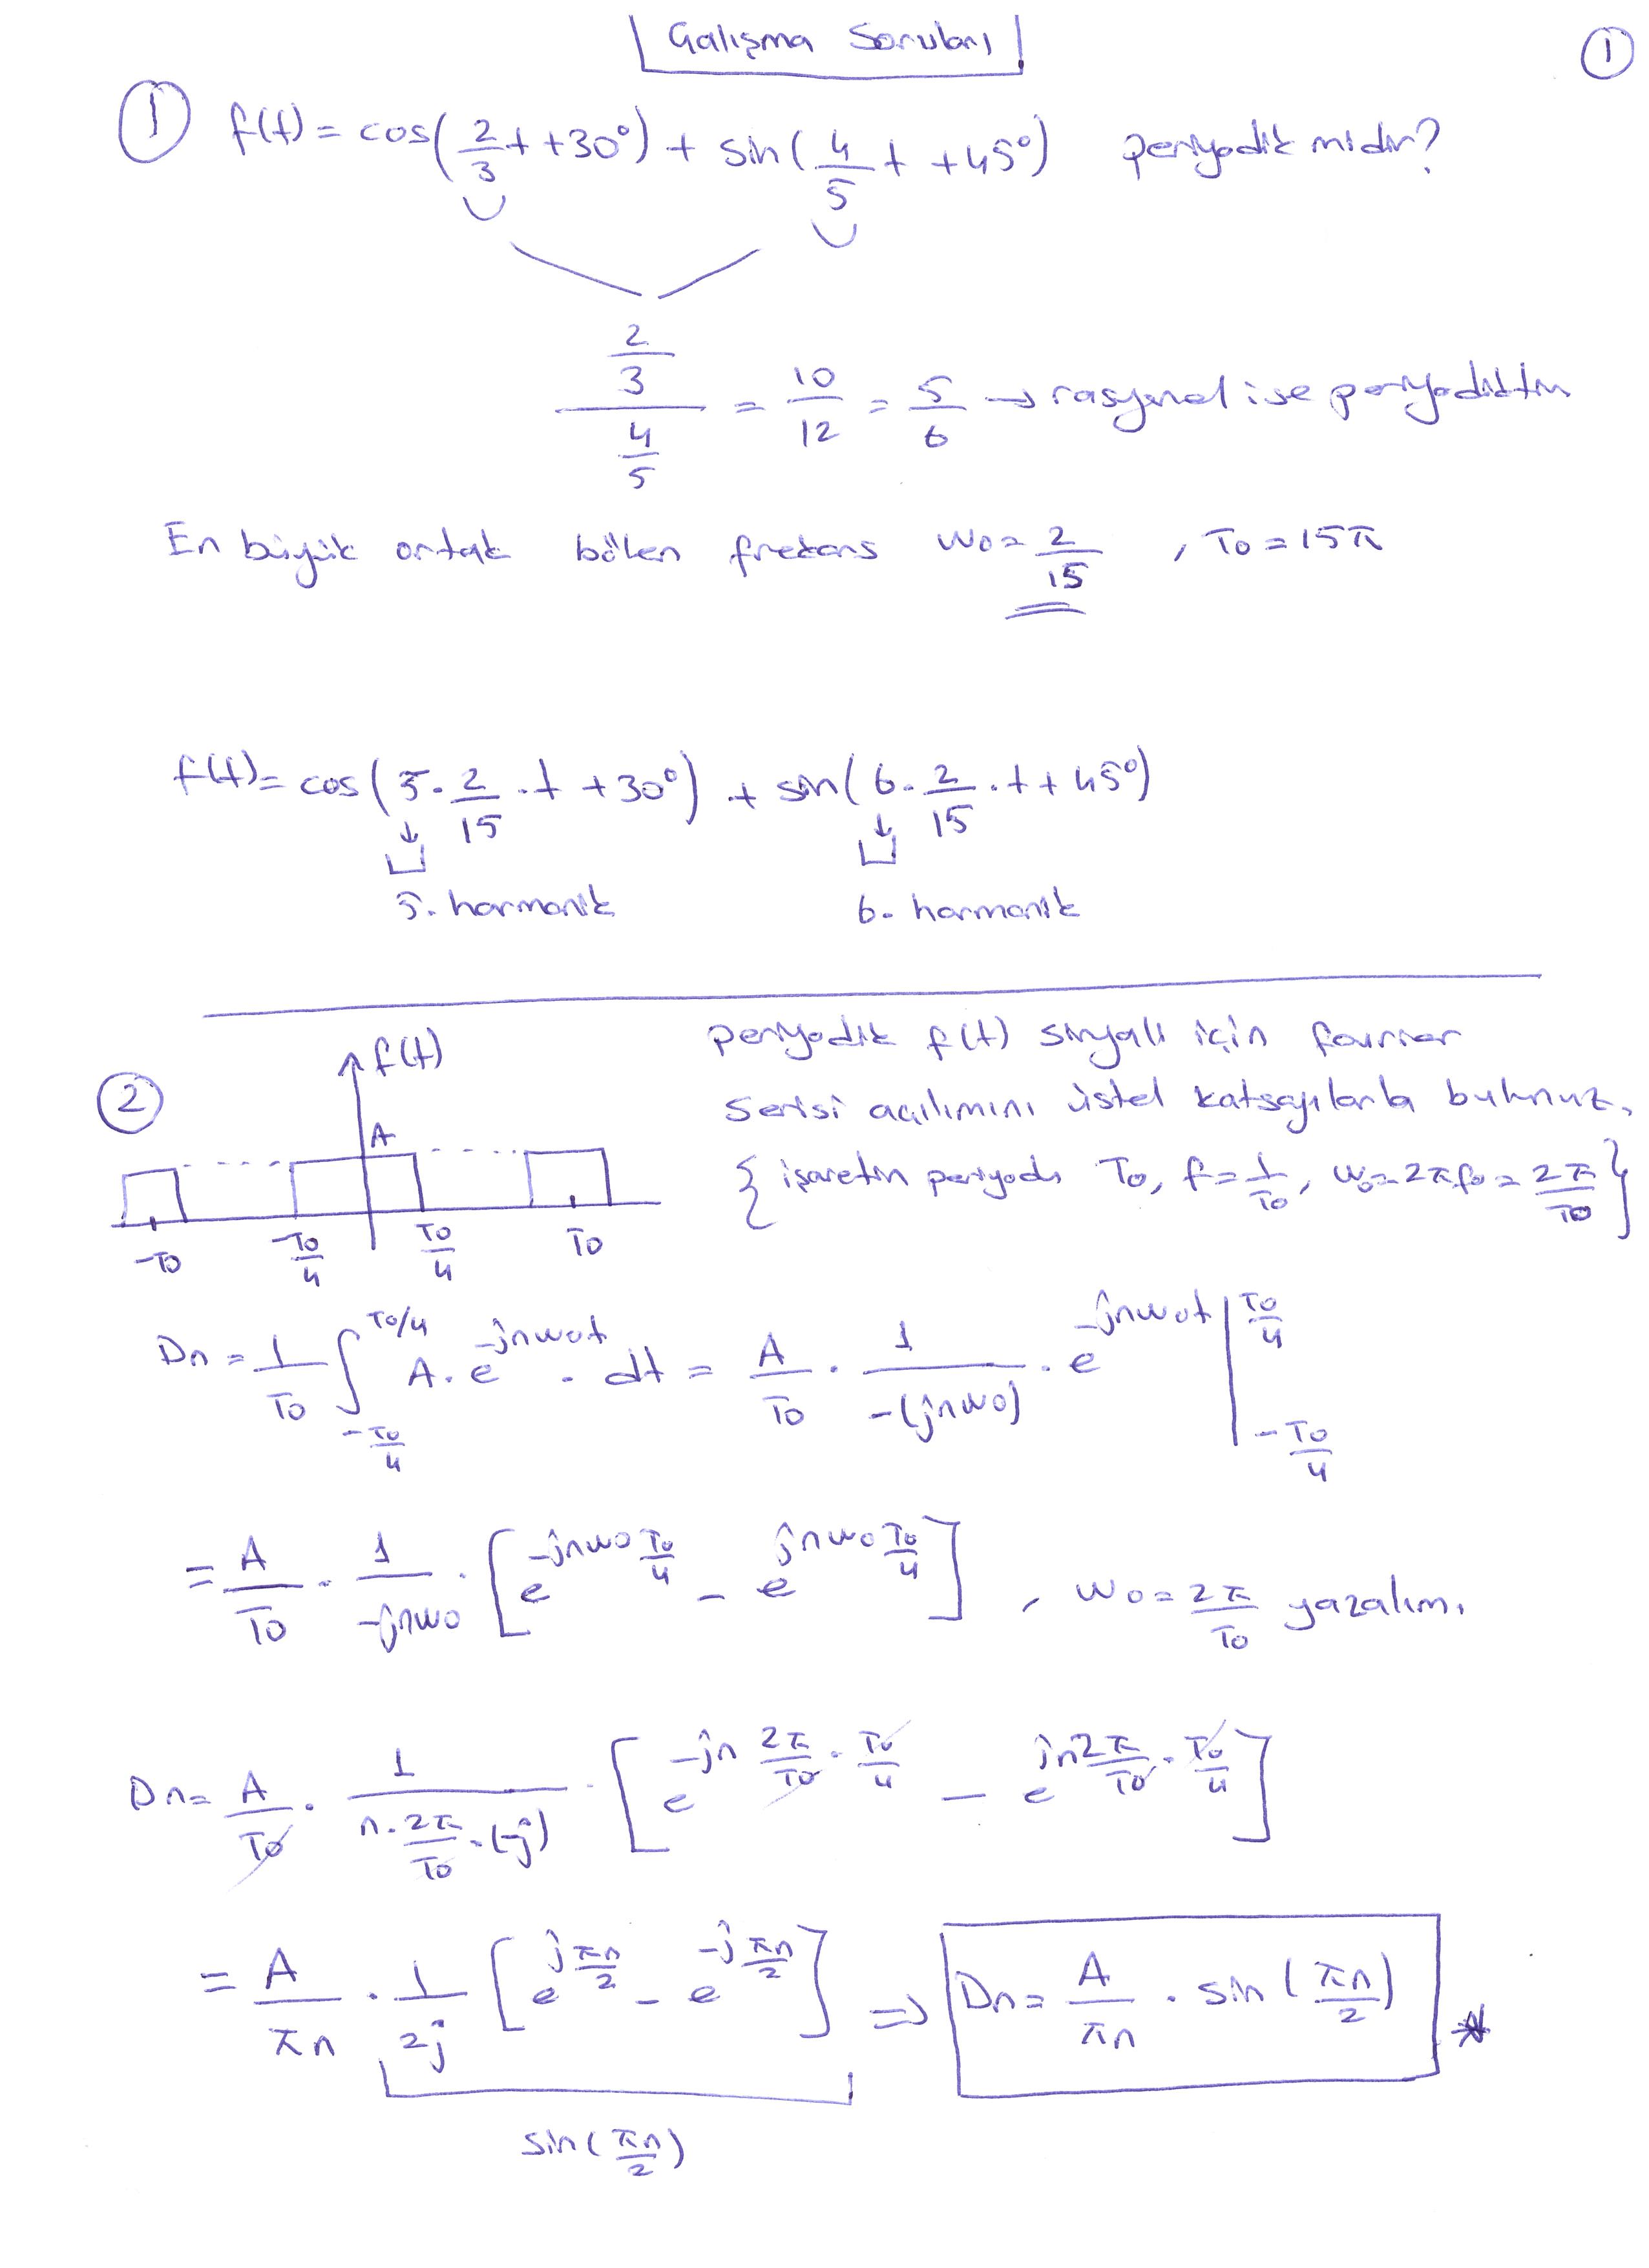 Çalışma Soruları
①
① f(t) = cos(2/3 t + 30°) + sin(4/5 t + 45°) periyodik midir?
(2/3)/(4/5) = 10/12 = 5/6 → rasyonel ise periyodiktir
En büyük ortak bölen frekans w0 = 2/15 , T0 = 15π
f(t) = cos(5 · 2/15 · t + 30°) + sin(6 · 2/15 · t + 45°)
5. harmonik 6. harmonik
② f(t) A -T0 -T0/4 T0/4 T0
periyodik f(t) sinyali için fourier
serisi açılımını üstel katsayılarla bulunuz.
{ işaretin periyodu T0, f = 1/T0, w0 = 2πf0 = 2π/T0 }
Dn = 1/T0 ∫_{-T0/4}^{T0/4} A · e^{-jnw0t} · dt = A/T0 · 1/-(jnw0) · e^{-jnw0t} |_{-T0/4}^{T0/4}
= A/T0 · 1/-jnw0 · [e^{-jnw0 T0/4} - e^{jnw0 T0/4}] , w0 = 2π/T0 yazalım.
Dn = A/T0 · 1/(n · 2π/T0 · (-j)) · [e^{-jn 2π/T0 · T0/4} - e^{jn 2π/T0 · T0/4}]
= A/πn · 1/2j [e^{j πn/2} - e^{-j πn/2}] ⇒ Dn = A/πn · sin(πn/2) *
sin(πn/2)